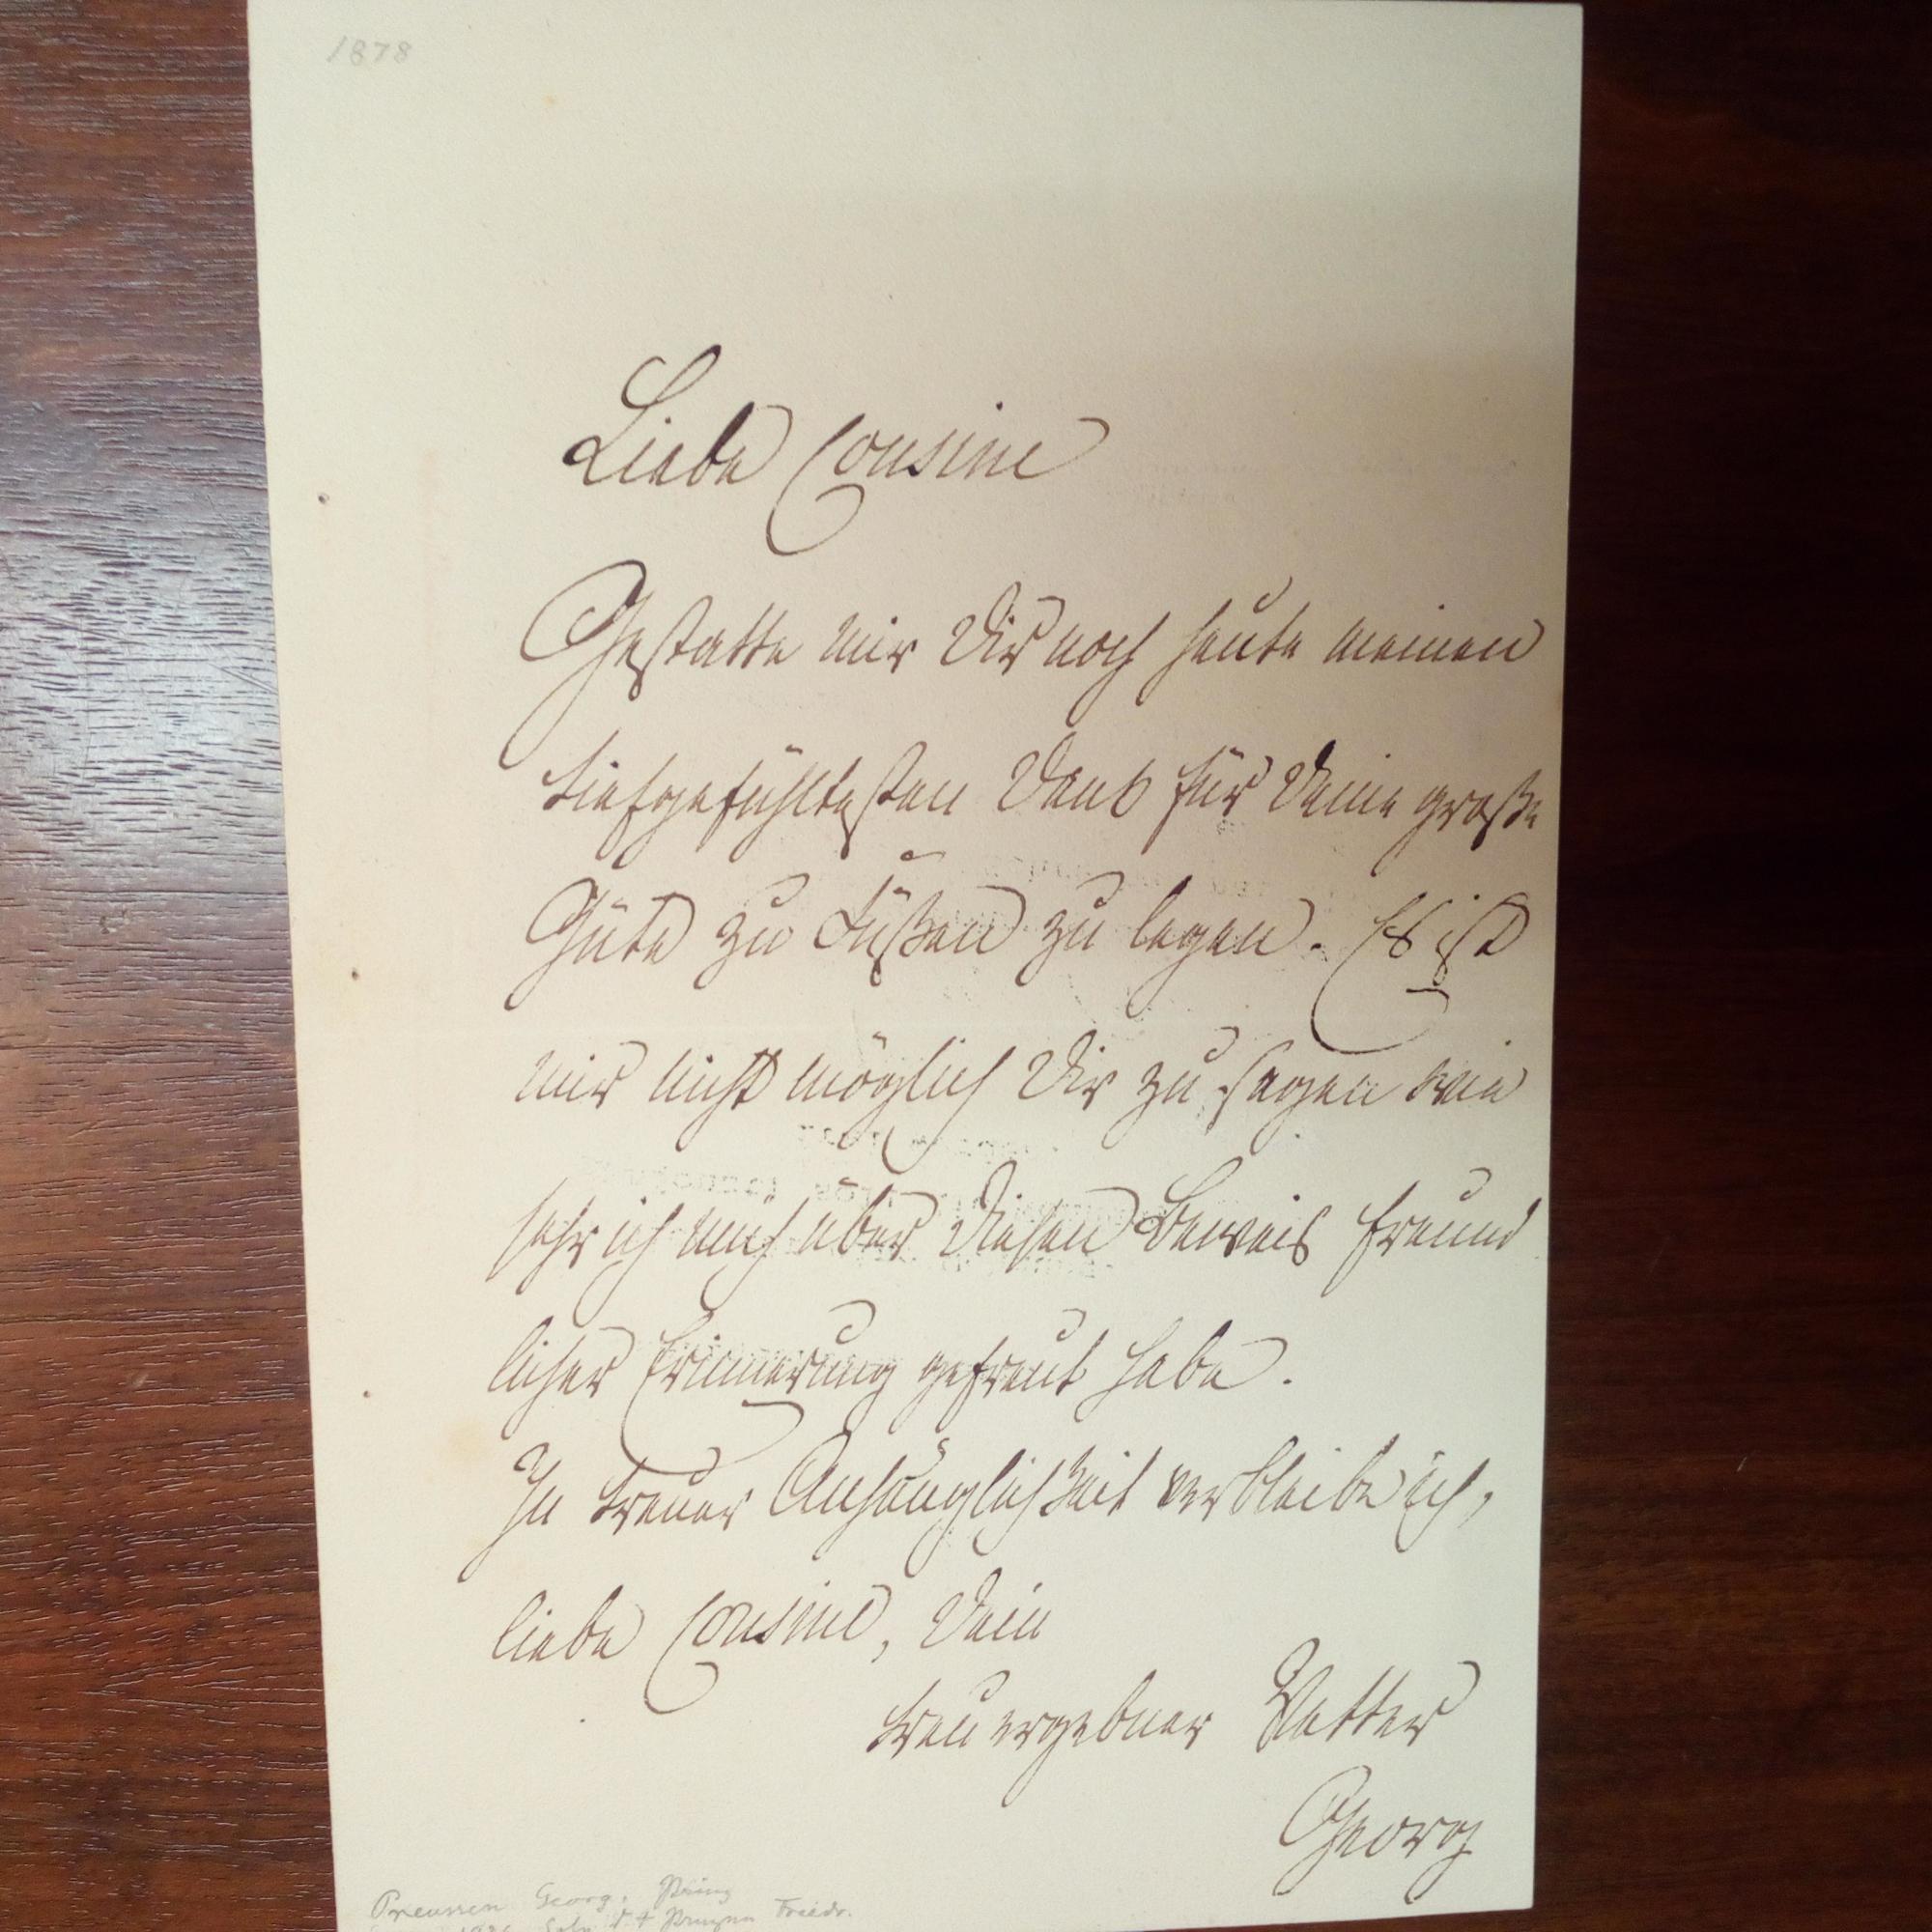 1878
Liebe Cousine
Gestatte mir Dir noch heute meinen
tiefgefühltesten Dank für Deine große
Güte zu Füßen zu legen. Es ist
mir nicht möglich Dir zu sagen wie
sehr ich mich über diesen Beweis freund
licher Erinnerung gefreut habe.
In treuer Anhänglichkeit verbleibe ich,
liebe Cousine, Dein
treuergebner Vetter
Georg
Preussen Georg, Prinz
1826 Sohn d. † Prinzen Friedr.